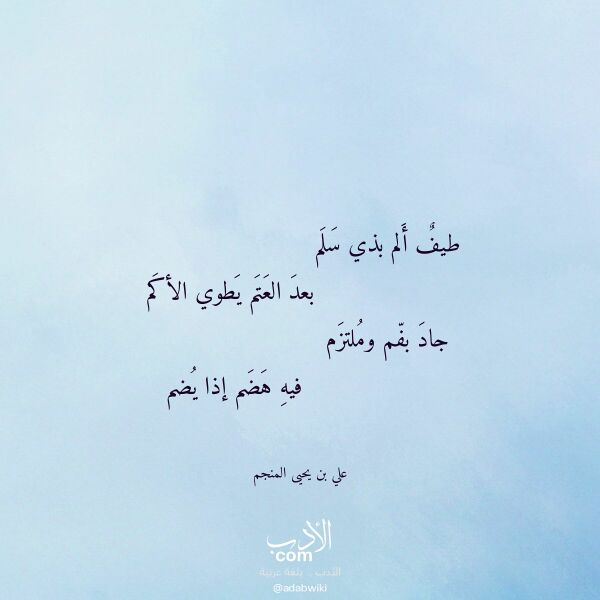 طيفٌ أَلم بذي سَلَم
بعدَ العَتَم يَطوي الأكَم
جادَ بفّم ومُلتزَم
فيهِ هَضَم إذا يُضم
علي بن يحيى المنجم
الأدب
com
الأدب .. بلغة عربية
@adabwiki